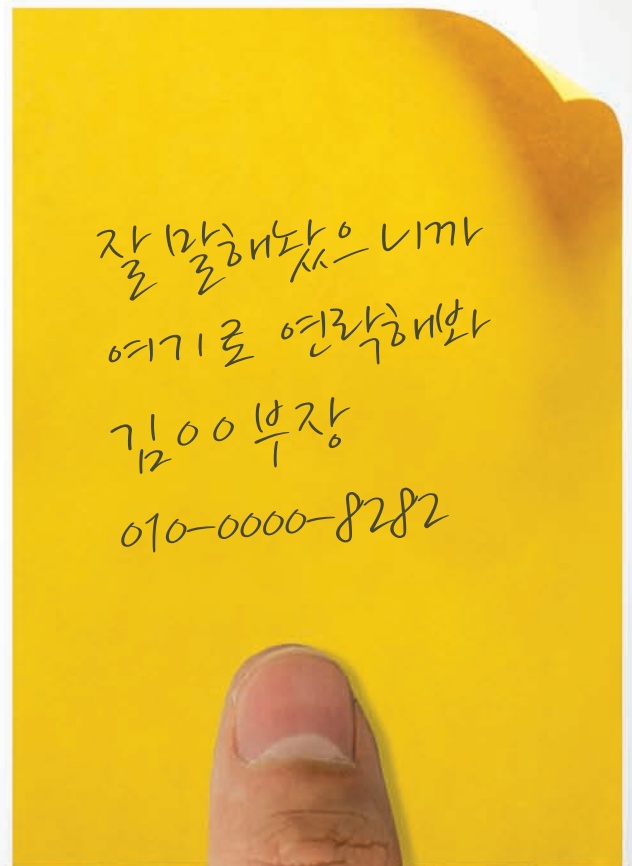 잘 말해놨으니까
여기로 연락해봐
김OO 부장
010-0000-8282